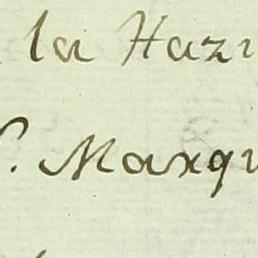 la Hazi
S. Marqu